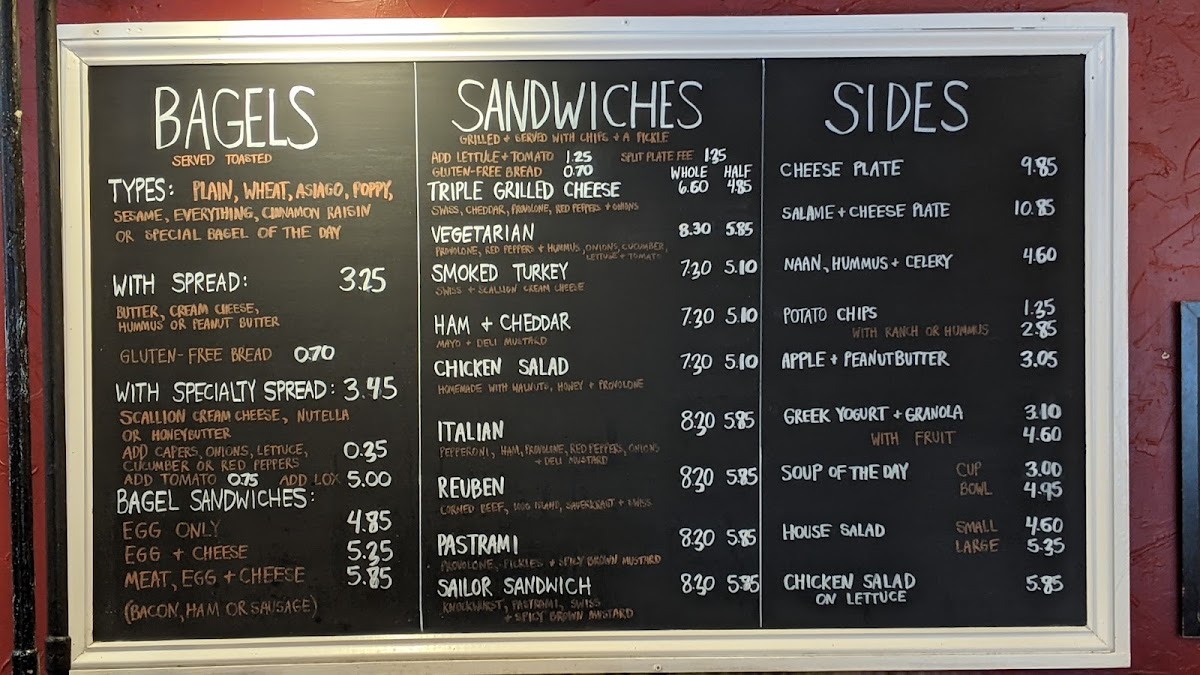 BAGELS
SERVED TOASTED
TYPES: PLAIN, WHEAT, ASIAGO, POPPY,
SESAME, EVERYTHING, CINNAMON RAISIN
OR SPECIAL BAGEL OF THE DAY
WITH SPREAD: 3.25
BUTTER, CREAM CHEESE,
HUMMUS OR PEANUT BUTTER
GLUTEN-FREE BREAD 0.70
WITH SPECIALTY SPREAD: 3.45
SCALLION CREAM CHEESE, NUTELLA
OR HONEYBUTTER
ADD CAPERS, ONIONS, LETTUCE, 0.35
CUCUMBER OR RED PEPPERS
ADD TOMATO 0.75 ADD LOX 5.00
BAGEL SANDWICHES:
EGG ONLY 4.85
EGG + CHEESE 5.35
MEAT, EGG + CHEESE 5.85
(BACON, HAM OR SAUSAGE)
SANDWICHES
GRILLED + SERVED WITH CHIPS + A PICKLE
ADD LETTUCE + TOMATO 1.25 SPLIT PLATE FEE 1.35
GLUTEN-FREE BREAD 0.70 WHOLE HALF
TRIPLE GRILLED CHEESE 6.60 4.85
SWISS, CHEDDAR, PROVOLONE, RED PEPPERS + ONIONS
VEGETARIAN 8.30 5.85
PROVOLONE, RED PEPPERS + HUMMUS, ONIONS, CUCUMBER,
LETTUCE + TOMATO
SMOKED TURKEY 7.30 5.10
SWISS + SCALLION CREAM CHEESE
HAM + CHEDDAR 7.30 5.10
MAYO + DELI MUSTARD
CHICKEN SALAD 7.30 5.10
HOMEMADE WITH WALNUTS, HONEY + PROVOLONE
ITALIAN 8.30 5.85
PEPPERONI, HAM, PROVOLONE, RED PEPPERS, ONIONS
+ DELI MUSTARD
REUBEN 8.30 5.85
CORNED BEEF, 1000 ISLAND, SAUERKRAUT + SWISS
PASTRAMI 8.30 5.85
PROVOLONE, PICKLES + SPICY BROWN MUSTARD
SAILOR SANDWICH 8.30 5.85
KNOCKWURST, PASTRAMI, SWISS
+ SPICY BROWN MUSTARD
SIDES
CHEESE PLATE 9.85
SALAME + CHEESE PLATE 10.85
NAAN, HUMMUS + CELERY 4.60
POTATO CHIPS 1.35
WITH RANCH OR HUMMUS 2.85
APPLE + PEANUTBUTTER 3.05
GREEK YOGURT + GRANOLA 3.10
WITH FRUIT 4.60
SOUP OF THE DAY CUP 3.00
BOWL 4.95
HOUSE SALAD SMALL 4.60
LARGE 5.35
CHICKEN SALAD 5.85
ON LETTUCE